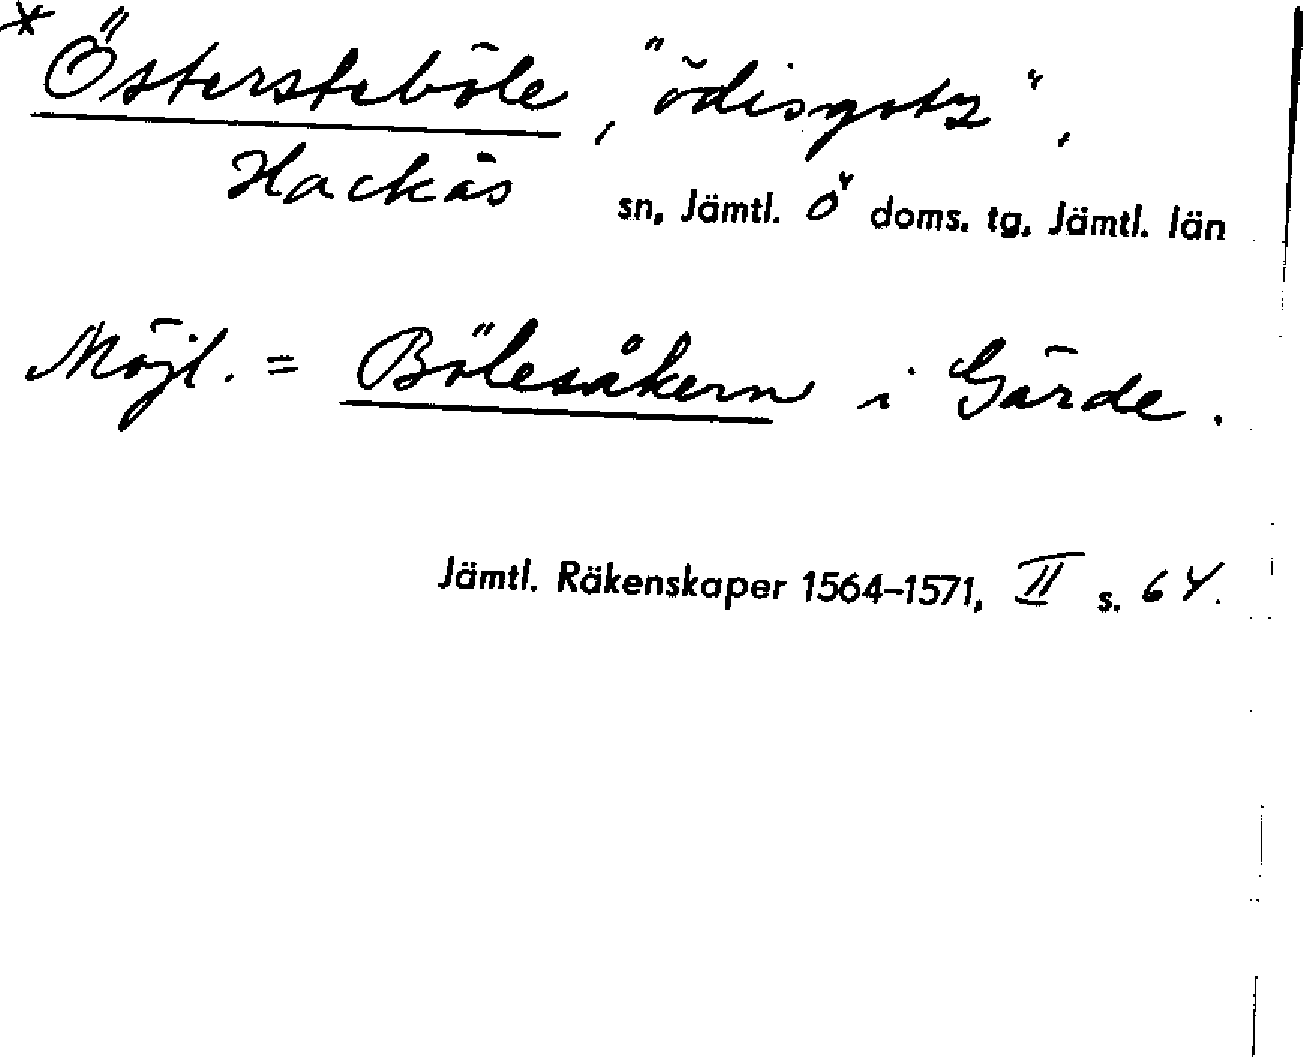 *Östersteböle, "ödisgotz".
Hackås sn, Jämtl. Ö doms. tg, Jämtl. län
Möjl. = Bölesåkern i Gärde.
Jämtl. Räkenskaper 1564–1571, II s. 64.